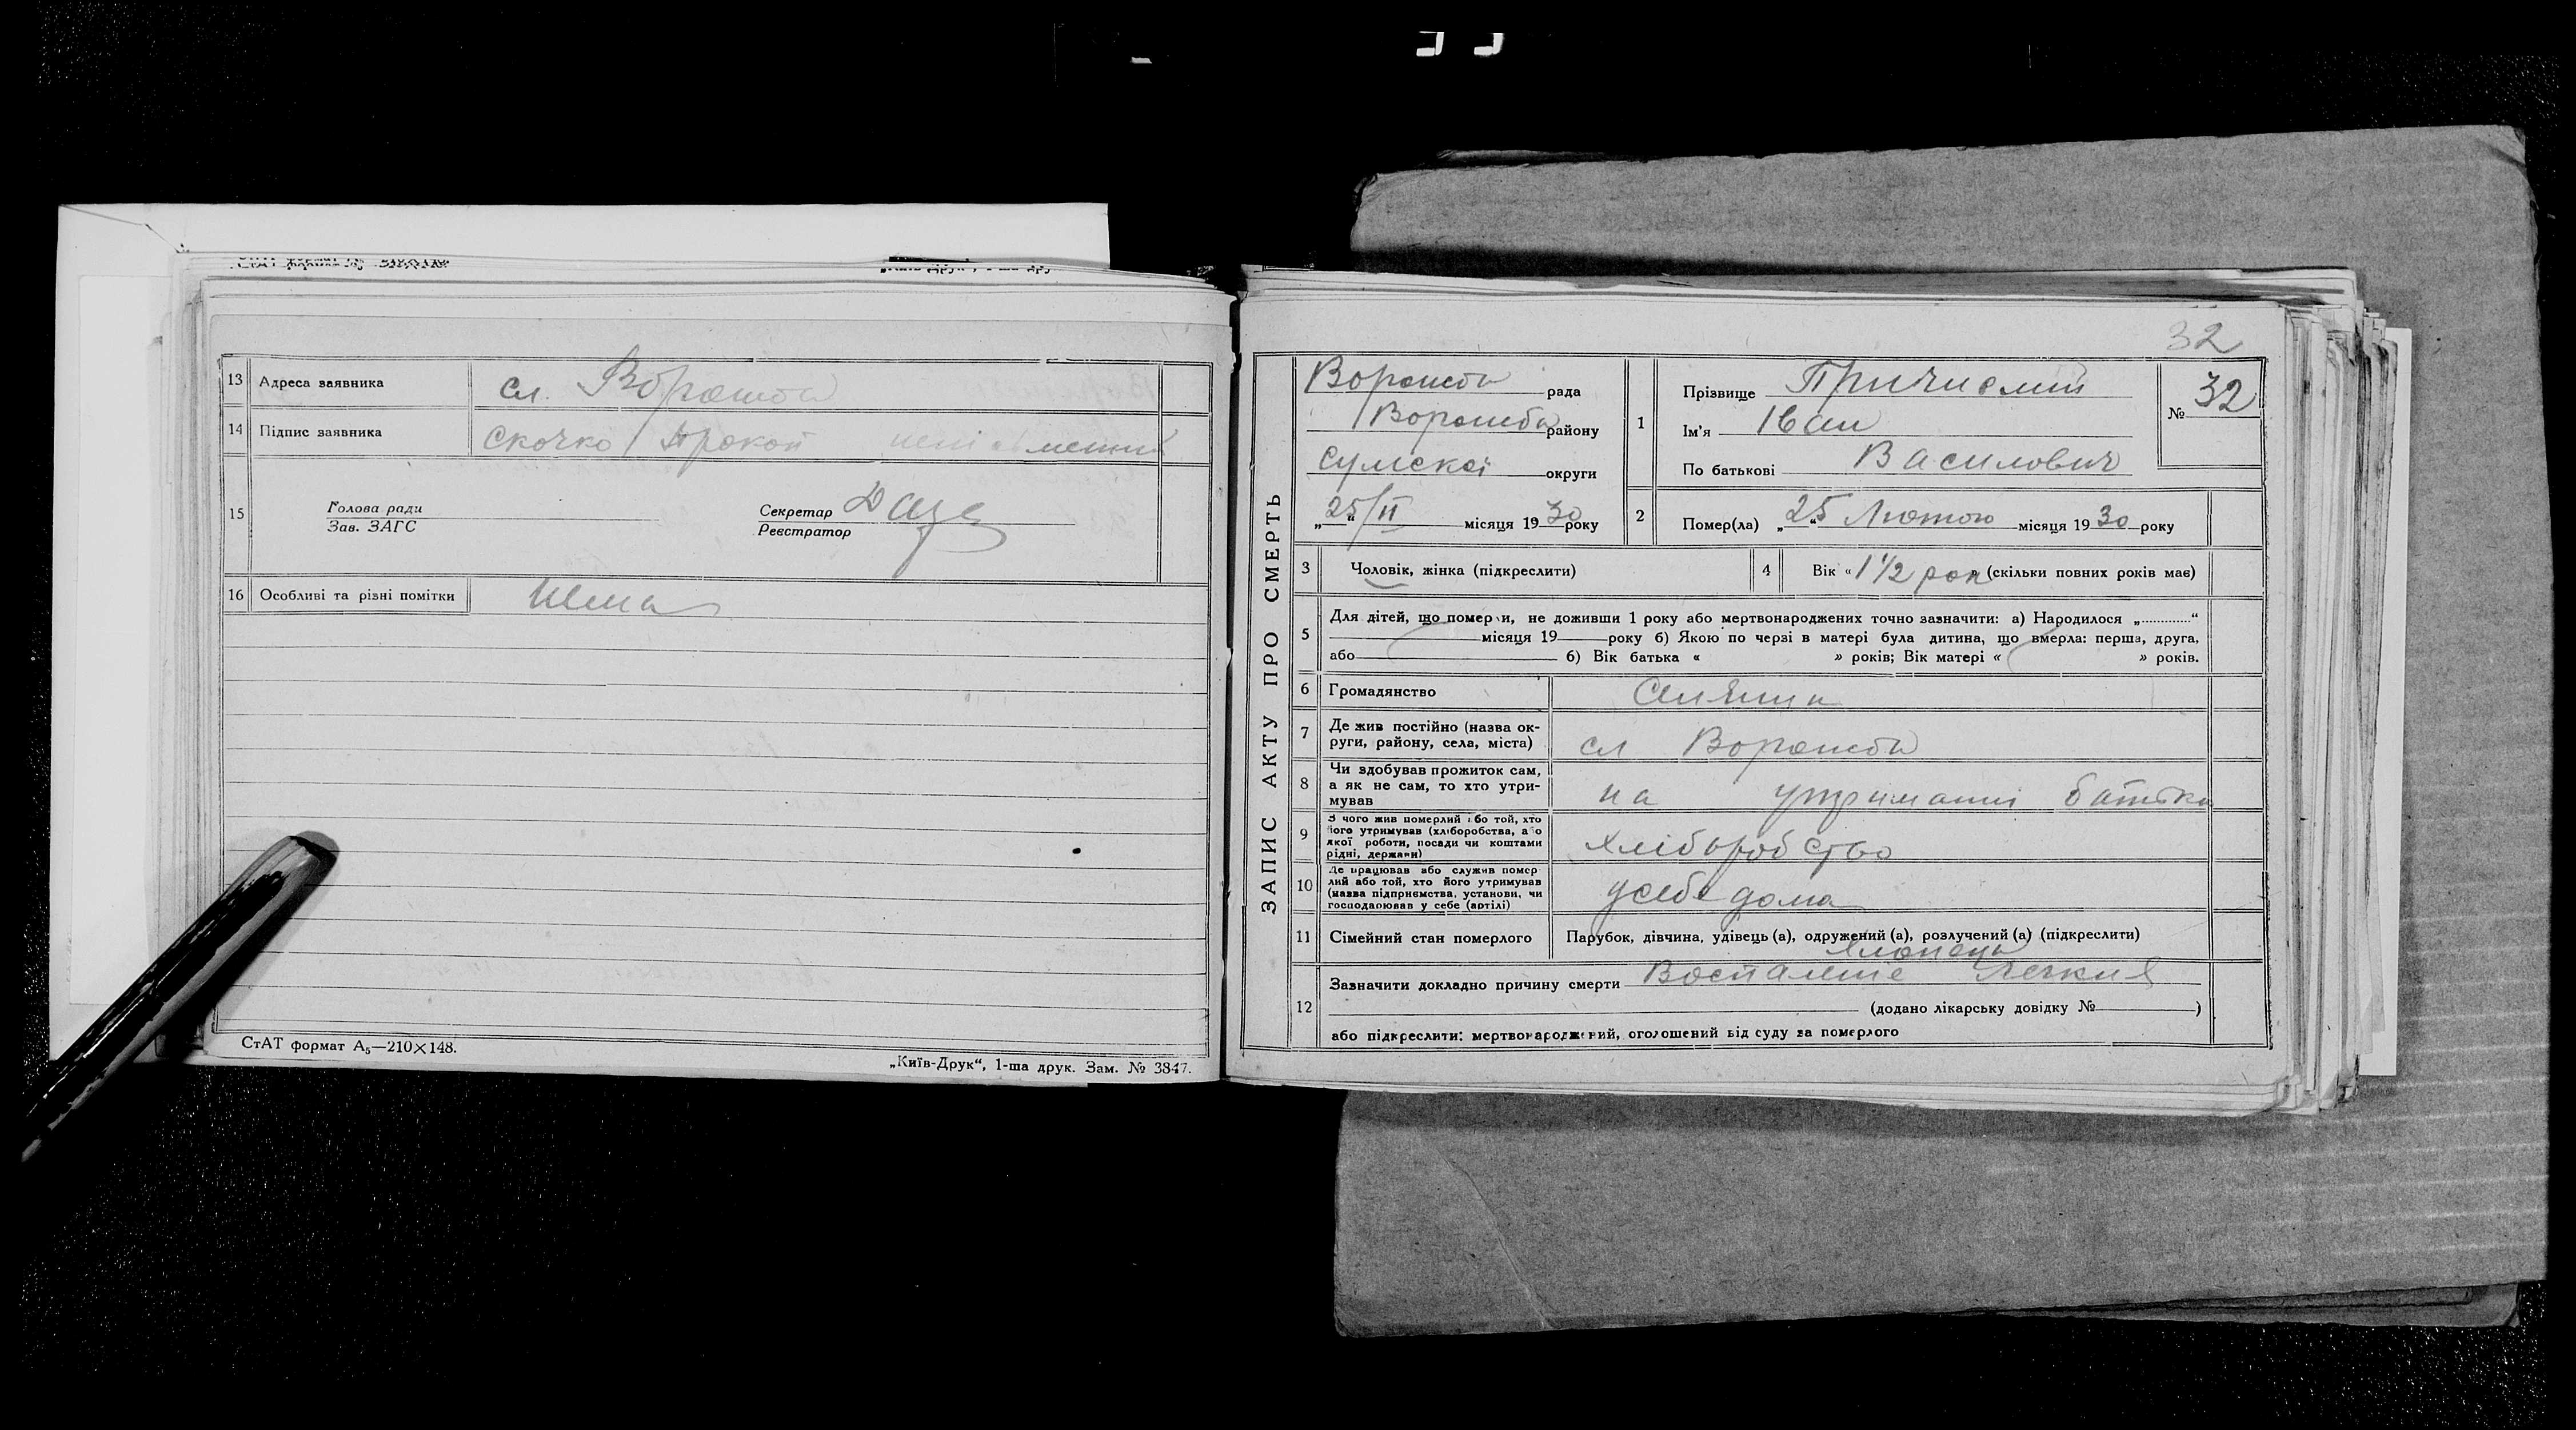 13 Адреса заявника сл. Ворожба
14 Підпис заявника Скочко Прокоп
15 Голова ради
Зав. ЗАГС
Секретар
Реєстратор
16 Особливі та різні помітки Нема
СтАТ формат А₅—210×148.
„Київ-Друк“, 1-ша друк. Зам. № 3847.
32
ЗАПИС АКТУ ПРО СМЕРТЬ
Ворожба рада
Ворожба району
Сумскої округи
„25/II“ місяця 1930 року
1 Прізвище
Ім'я Іван
По батькові Василович
№ 32
2 Помер(ла) „25“ Лютого місяця 1930 року
3 Чоловік, жінка (підкреслити)
4 Вік «1 1/2 рок» (скільки повних років має)
5 Для дітей, що померли, не доживши 1 року або мертвонароджених точно зазначити: а) Народилося „............“
місяця 19 року б) Якою по черзі в матері була дитина, що вмерла: перша, друга,
або б) Вік батька « » років; Вік матері « » років.
6 Громадянство
7 Де жив постійно (назва ок-
руги, району, села, міста) сл Ворожба
8 Чи здобував прожиток сам,
а як не сам, то хто утри-
мував на утриманні батька
9 З чого жив померлий або той, хто
його утримував (хліборобства, або
якої роботи, посади чи коштами
рідні, держави) Хліборобство
10 Де працював або служив помер
лий або той, хто його утримував
(назва підприємства, установи, чи
господарював у себе (артілі) у себе дома
11 Сімейний стан померлого Парубок, дівчина, удівець (а), одружений (а), розлучений (а) (підкреслити)
хлопець
12 Зазначити докладно причину смерти Воспаление легкия
(додано лікарську довідку № )
або підкреслити: мертвонароджений, оголошений від суду за померлого